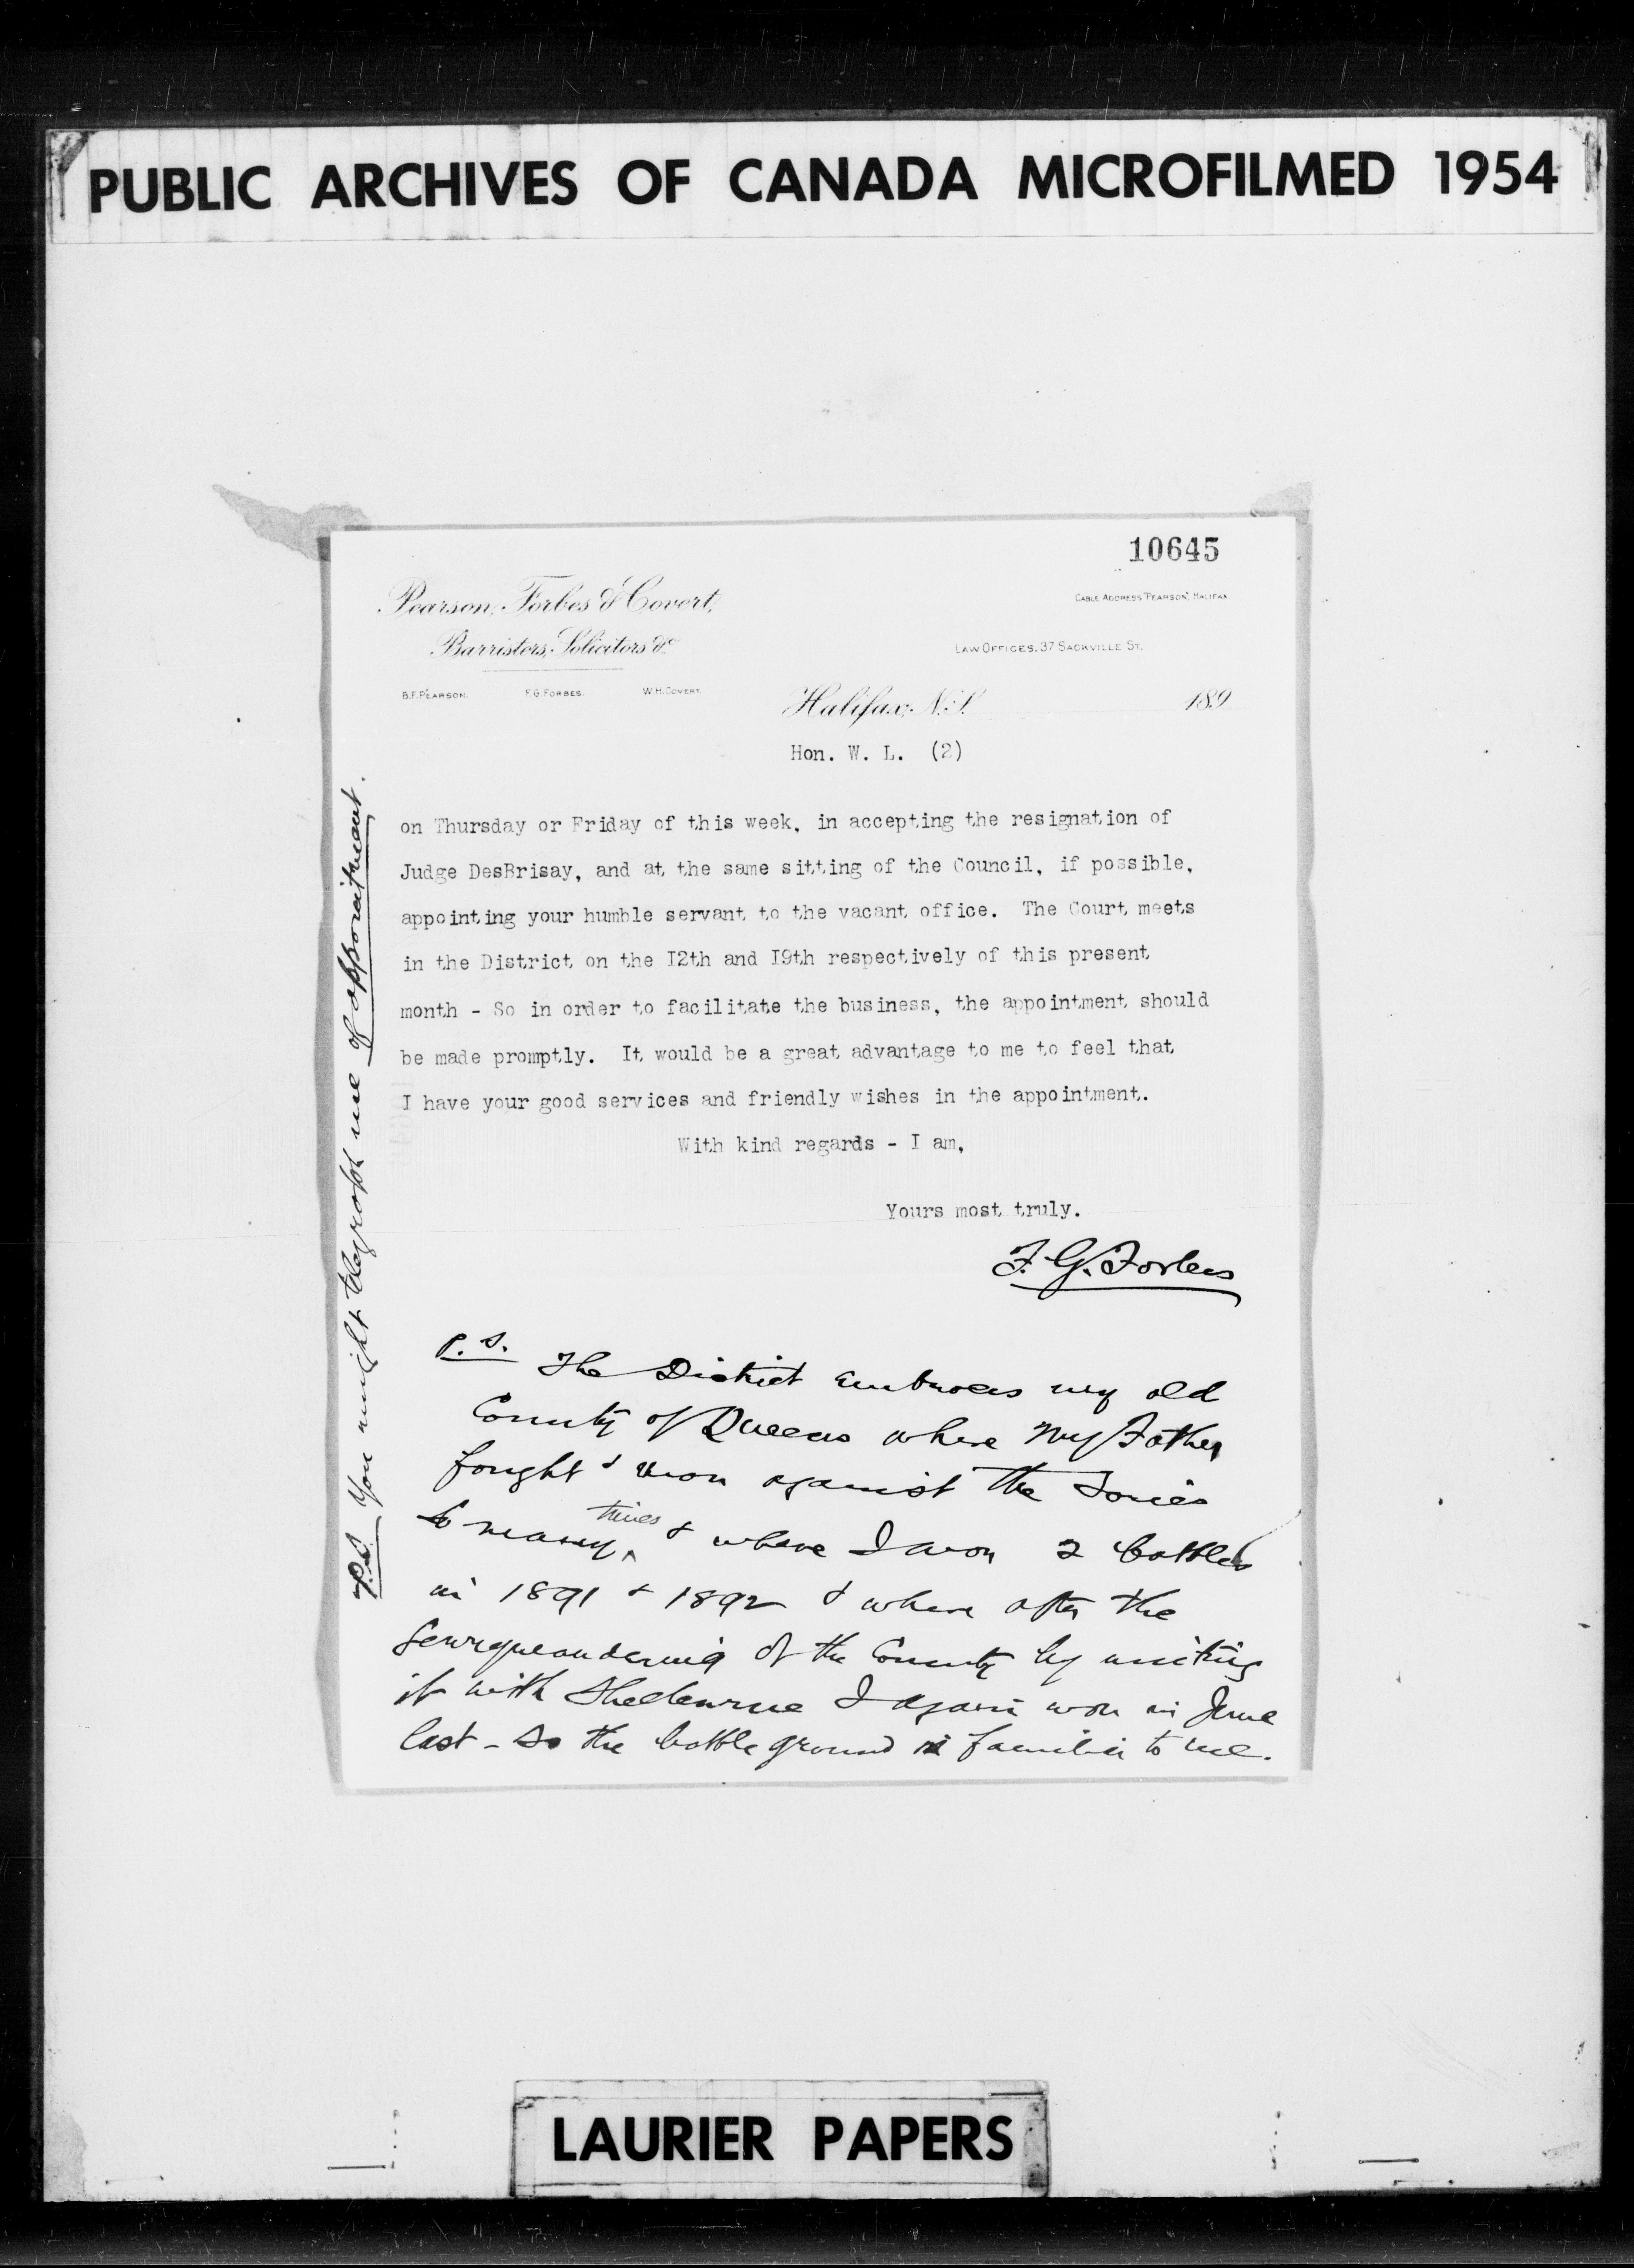 PUBLIC ARCHIVES OF CANADA MICROFILMED 1954
10645
Pearson, Forbes & Covert,
Barristers, Solicitors &c
CABLE ADDRESS "PEARSON", HALIFAX
LAW OFFICES, 37 SACKVILLE ST.
B.F. PEARSON. F.G. FORBES. W.H. COVERT.
Halifax, N.S. 189
Hon. W. L. (2)
on Thursday or Friday of this week, in accepting the resignation of
Judge DesBrisay, and at the same sitting of the Council, if possible,
appointing your humble servant to the vacant office. The Court meets
in the District on the I2th and I9th respectively of this present
month - So in order to facilitate the business, the appointment should
be made promptly. It would be a great advantage to me to feel that
I have your good services and friendly wishes in the appointment.
With kind regards - I am,
Yours most truly.
F. G. Forbes
P.S. The District embraces my old
County of Queens where my Father
fought & won against the Tories
so many times & where I won 2 battles
in 1891 & 1892 & where after the
Gerrymandering of the County by uniting
it with Shelburne I again won in June
last - so the battle ground is familiar to me.
P.S. You might telegraph me of appointment.
LAURIER PAPERS